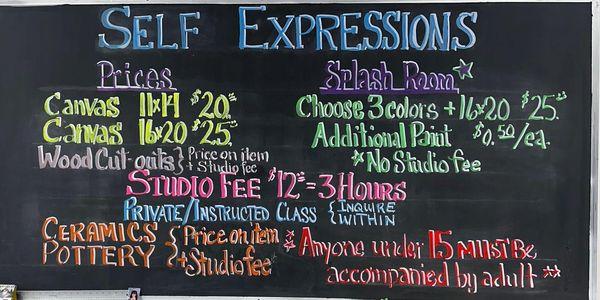 SELF EXPRESSIONS
Prices
Canvas 11x14 $20.00
Canvas 16x20 $25.00
Wood Cut-outs } Price on item
+ Studio fee
Splash Room
Choose 3 colors + 16x20 $25.00
Additional Paint $0.50/ea.
*No Studio fee
STUDIO FEE $12.00 = 3 HOURS
PRIVATE/INSTRUCTED CLASS { INQUIRE
WITHIN
CERAMICS
POTTERY { Price on item
+ Studio fee
*Anyone under 15 MUST Be
accompanied by adult*